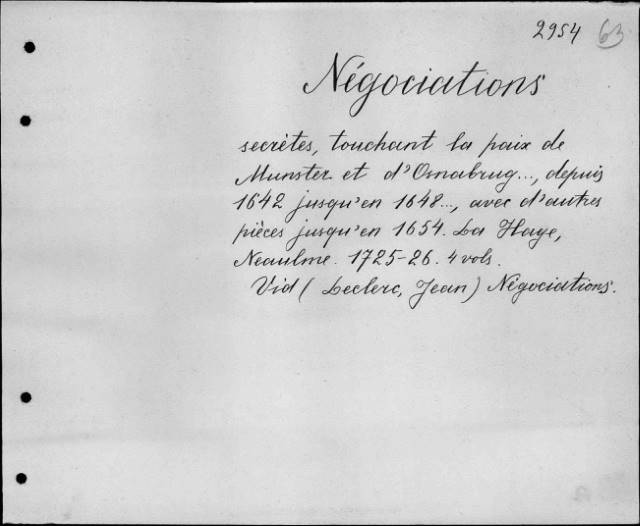 2954 63
Négociations
secrètes, touchant la paix de
Munster et d'Osnabrug..., depuis
1642 jusqu'en 1648..., avec d'autres
pièces jusqu'en 1654. La Haye,
Neaulme. 1725-26. 4 vols.
Vid (Leclerc, Jean) Négociations.